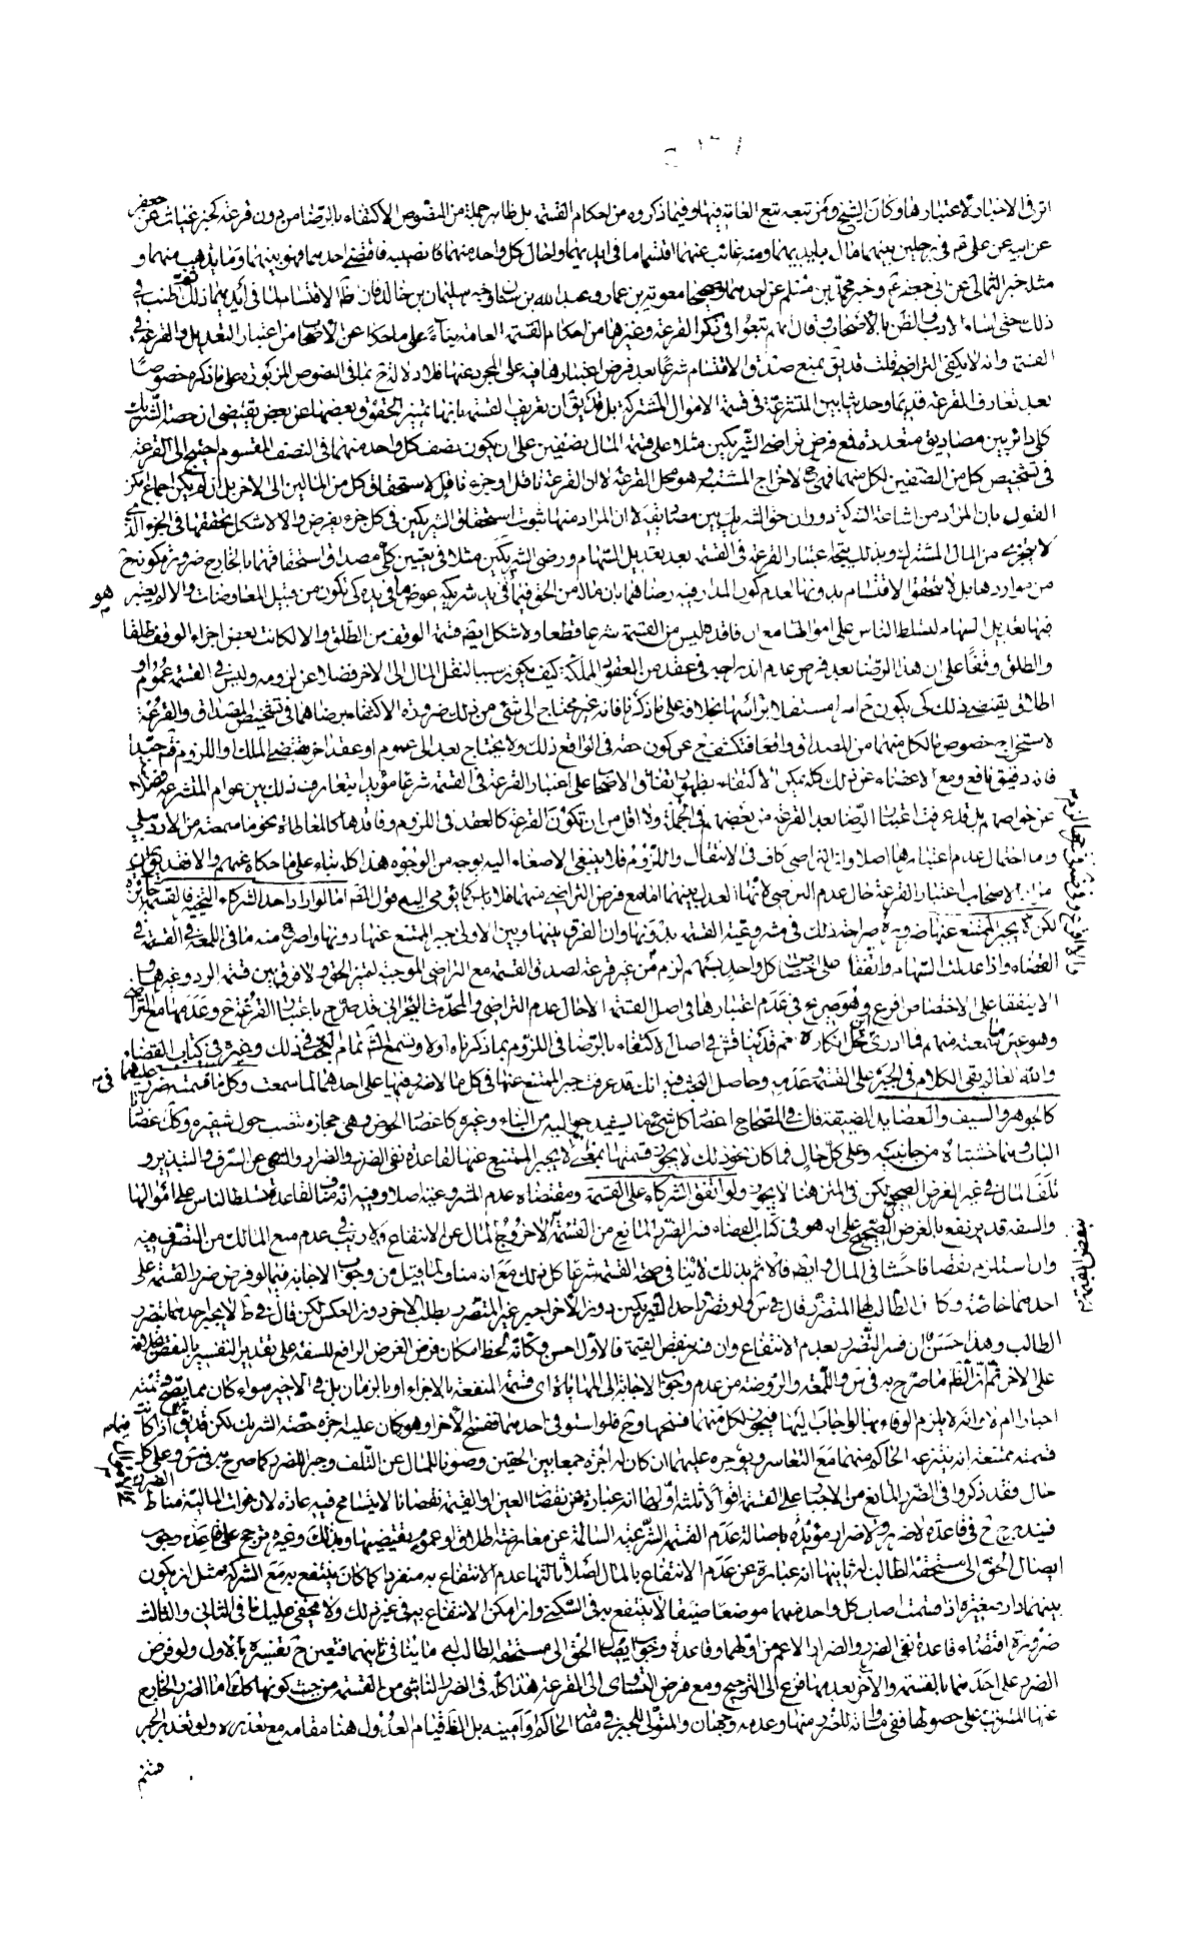 اثر في الاخبار لاعتبارها وكان الشيخ ومن تبعه تبع العامة فيها وفيما ذكروه من احكام القسمة بل ظاهر جملة من النصوص الاكتفاء بالرضا من دون قرعة كخبر غياث عن جعفر
عن ابيه عن علي ع في رجلين بينهما مال منه بايديهما ومنه غائب عنهما اقتسما ما في ايديهما واحال كل واحد منهما بنصيبه فاقتضى احدهما فهو بينهما وما يذهب منهما و
مثله خبر الثمالي عن ابي جعفر ع وخبر محمد بن مسلم عن احدهما و معوية بن عمار وعبد الله بن سنان وخبر سليمان بن خالد فان ظ الاقتسام لما في ايديهما ذلك
ذلك حتى اساء الادب والظن بالاصحاب وقال انهم تبعوا في ذكر القرعة وغيرها من احكام القسمة العامة بناء على ما حكاه عن الاصحاب من اعتبار التعديل والقرعة في
القسمة وانه لا يكفي التراضي قلت قد يق بمنع صدق الاقتسام شرعا بعد فرض اعتبارها فيه على المجرد عنها فلا دلالة ح في النصوص المزبورة على ما ذكره خصوصا
بعد تعارف القرعة قديما وحديثا بين المتشرعة في قسمة الاموال المشتركة بل قد يق ان تعريف القسمة بانها تمييز الحقوق بعضها عن بعض يقتضي ان حصة الشريك
كلي دائر بين مصاديق متعددة فمع فرض تراضي الشريكين مثلا على قسمة المال نصفين على ان يكون نصف كل واحد منهما في النصف المقسوم احتيج الى القرعة
في تشخيص كل من النصفين لكل منهما فهي ح لاخراج المشتبه وهو محل القرعة لا ان القرعة ناقل او جزء ناقل لاستحقاق كل من المالين الى الاخر بل
القول بان المراد من اشاعة الشركة دوران حق الشريك بين مصاديقه لا ان المراد منها ثبوت استحقاق الشريكين في كل جزء يفرض والا لاشكل تحققها في الجزء الذي
لا يتجزى من المال المشترك وبذلك يتجه اعتبار القرعة في القسمة بعد تعديل السهام ورضى الشريكين مثلا في تعيين كلي مصداق استحقاقهما بالخارج ضرورة كونه ح
من مواردها بل لا يتحقق الاقتسام بدونها لعدم كون المدار فيه رضاهما بان ماله من الحق فيما في يد شريكه عوض ما في يده كي تكون من قبيل المعاوضات والا لم يعتبر
فيها تعديل السهام لتسلط الناس على اموالها مع ان فاقده ليس من القسمة شرعا قطعا ولاشكل ايضا قسمة الوقف من الطلق والا لكانت بعض اجزاء الوقف طلقا
والطلق وقفا على ان هذا الرضا بعد فرض عدم اندراجه في عقد من العقود المملكة كيف يكون سببا لنقل المال الى الاخر فضلا عن لزومه وليس في القسمة عموم او
اطلاق يقتضي ذلك كي يكون ح اصلا مستقلا براسها بخلافه على ما ذكرنا فانه غير محتاج الى شيء من ذلك ضرورة الاكتفاء برضاهما في تشخيص المصداق والقرعة
لاستخراج خصوص ما لكل منهما من المصداق واقعا فتكشف ح عن كون حقه في الواقع ذلك ولا يحتاج بعد الى عموم او عقد اخر يقتضي الملك واللزوم فتدبر جيدا
فانه دقيق نافع ومع الاغضاء عن ذلك كله يمكن الاكتفاء بظهور اتفاق الاصحاب على اعتبار القرعة في القسمة شرعا مؤيدا بتعارف ذلك بين عوام المتشرعة فضلا
عن خواصهم بل قد عرفت اعتبار الرضا بعد القرعة من بعضهم في الجملة ولا اقل من ان تكون القرعة كالعقد في اللزوم وفاقدها كالمعاطاة نحو ما سمعته من الاردبيلي
واما احتمال عدم اعتبارها اصلا وان التراضي كاف في الانتقال واللزوم فلا ينبغي الاصغاء اليه بوجه من الوجوه هذا كله بناء على ما حكاه عنهم والا فقد يق
مراد الاصحاب اعتبار القرعة حال عدم التراضي لانها العدل بينهما اما مع فرض التراضي منهما فلا باس كما يومي اليه قول المص اما لو اراد احد الشركاء التخيير فالقسمة جائزة
لكن لا يجبر الممتنع عنها ضرورة صراحة ذلك في مشروعية القسمة بدونها وان الفرق بينها وبين الاولى جبر الممتنع عنها دونها واصرح منه ما في اللمعة في القسمة في
القضاء واذا عدلت السهام واتفقا على اختصاص كل واحد بسهم لزم من غير قرعة لصدق القسمة مع التراضي الموجب لتميز الحق ولا فرق بين قسمة الرد وغيرها و
الا يتفقا على الاختصاص اقرع وهو صريح في عدم اعتبارها في اصل القسمة الا حال عدم التراضي والمحدث البحراني قد صرح باعتبار القرعة ح وعدمها مع التراضي
وهو عين ما سمعته منهم فما ادري اين محل انكاره نعم قد يناقش في اصل الاكتفاء بالرضا في اللزوم بما ذكرناه اولا وتسمع انش تمام البحث في ذلك وغيره في كتاب القضاء
والله العالم بقي الكلام في الجبر على القسمة وعدمه وحاصل البحث فيه انك قد عرفت جبر الممتنع عنها في كل ما لا ضرر فيها على احدهما لما سمعت وكل ما قسمته ضرر
كالجوهر والسيف والعضايد الضيقة قال في الصحاح اعضاد كل شيء ما يشيد حواليه من البناء وغيره كاعضاد الحوض وهي حجارة تنصب حول شفيره وكك عضادتا
الباب وهما خشبتاه من جانبيه وعلى كل حال فما كان نحو ذلك لا يجوز قسمتها بمعنى لا يجبر الممتنع عنها لقاعدة نفي الضرر والضرار والنهي عن السرف والتبذير و
تلف المال في غير الغرض الصحيح لكن في المتن هنا لا يجوز ولو اتفق الشركاء على القسمة ومقتضاه عدم المشروعية اصلا وفيه انه مناف لقاعدة تسلط الناس على اموالها
والسفه قد يرتفع بالغرض الصحيح على انه هو في كتاب القضاء فسر الضرر المانع من القسمة لا خروج المال عن الانتفاع ولا ريب في عدم منع المالك من التصرف فيه
وان استلزم نقصا فاحشا في المال وايضا فالاثم بذلك لا ينافي صحة القسمة شرعا كل ذلك مع انه مناف لما قيل من وجوب الاجابة فيما لو فرض ضرر القسمة على
احدهما خاصة وكان الطالب لها المتضرر قال في ش ولو تضرر احد الشريكين دون الآخر اجبر غير المتضرر بطلب الاخر دون العكس لكن قال في ط لا يجبر احدهما بتضرر
الطالب وهذا حسن ان فسر التضرر بعدم الانتفاع وان فسر بنقص القيمة فالاول احسن وكانه لحظ امكان فرض الغرض الرافع للسفه على تقدير التفسير بالنقص
على الاخر ثم ان الظ ما صرح به في س واللمعة والروضة من عدم وجوب الاجابة الى المهاياة اي قسمة المنفعة بالاجزاء او بالزمان بل في الاخير سواء كان مما يصح قسمته
اجبارا ام لا وانه لا يلزم الوفاء بها لو اجاب اليها فيجوز لكل منهما فسخها وح فلو استوفى احدهما ففسخ الآخر او هو كان عليه اجرة حصة الشريك لكن قد يق اذا كانت
قسمته ممتنعة انه ينتزعه الحاكم منهما مع التعاسر ويوجره عليهما ان كان له اجرة جمعا بين الحقين وصونا للمال عن التلف وجبرا للضرر كما صرح به في س وش وعلى كل
حال فقد ذكروا في الضرر المانع من الاجبار على القسمة اقوالا ثلثة اولها انه عبارة عن نقصان العين او القيمة نقصانا لا يتسامح فيه عادة لان فوات المالية مناط
فيندرج ح في قاعدة لا ضرر ولا ضرار مؤيدة باصالة عدم القسمة الشرعية السالمة عن معارضة اطلاق او عموم يقتضيها وبذلك وغيره ترجح على قاعدة وجوب
ايصال الحق الى مستحقه الطالب له ثانيها انه عبارة عن عدم الانتفاع بالمال اصلا ثالثها عدم الانتفاع به منفردا كما كان ينتفع به مع الشركة مثل ان يكون
بينهما دار صغيرة اذا قسمت اصاب كل واحد منهما موضعا ضيقا لا ينتفع به في السكنى وان امكن الانتفاع به في غير ذلك ولا يخفى عليك ما في الثاني والثالث
ضرورة اقتضاء قاعدة نفي الضرر والضرار الاعم من اولهما وقاعدة وجوب ايصال الحق الى مستحقه الطالب له ما ينافي ثانيهما فتعين ح تفسيره بالاول ولو فرض
الضرر على احدهما بالقسمة والآخر بعدمها فزع الى الترجيح ومع فرض التساوي الى القرعة هذا كله في الضرر الناشي من القسمة من حيث كونها كك اما الضرر الخارج
عنها المترتب على حصولها ففي مساواته للضرر منها وعدمه وجهان والمتولي للجبر في مقامه الحاكم وامينه بل الظ قيام العدول هنا مقامه مع تعذره ولو تعذر الجبر